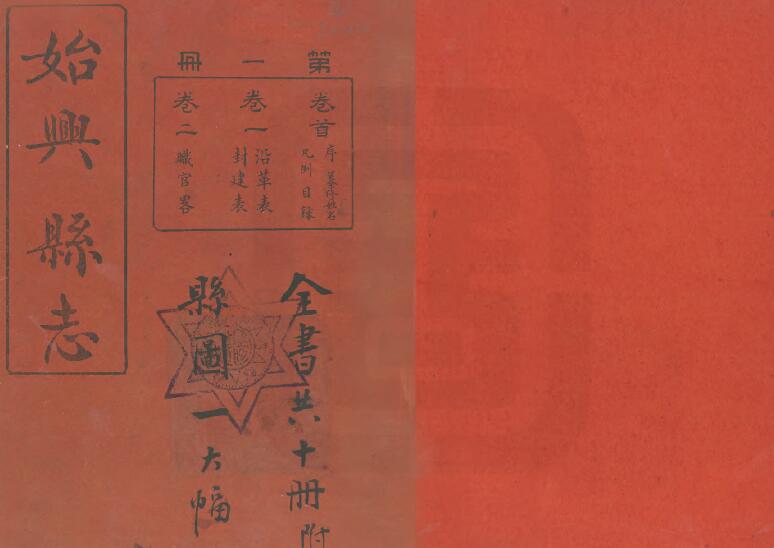 始興縣志
第一冊
卷首
序 纂修姓名
凡例 目錄
卷一
沿革表
封建表
卷二
職官畧
全書共十冊附
縣圖一大幅